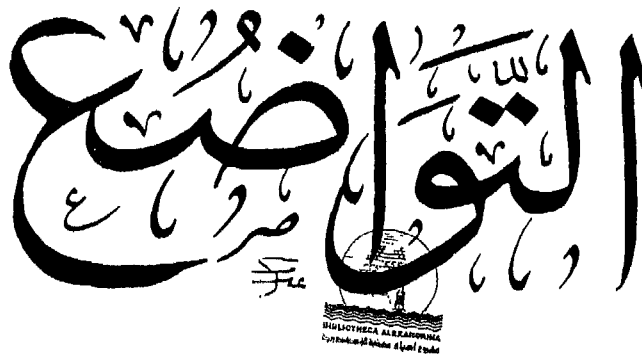 التَّوَاضُع
BIBLIOTHECA ALEXANDRINA